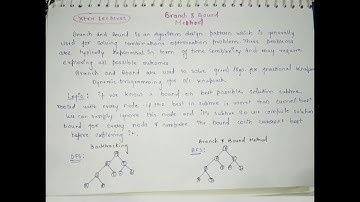 Extra Lecture
Branch & Bound
Method
Branch and Bound is an algorithm design pattern which is generally
used for solving combinatorial optimization problem. These problems
are typically exponential in term of time complexity and may require
exploring all possible outcome.
Branch and Bound are used to solve 0/1 knapsack
Dynamic programming for 0/1 knapsack.
Logic: If we know a bound on best possible solution subtree
rooted with every node if the best in subtree is worst than current best
We can simply ignore this node and it's subtree so we compute solution
bound for every node & compare the bound with current best
before exploring it.
Backtracking
Branch & Bound Method
DFS:
BFS: